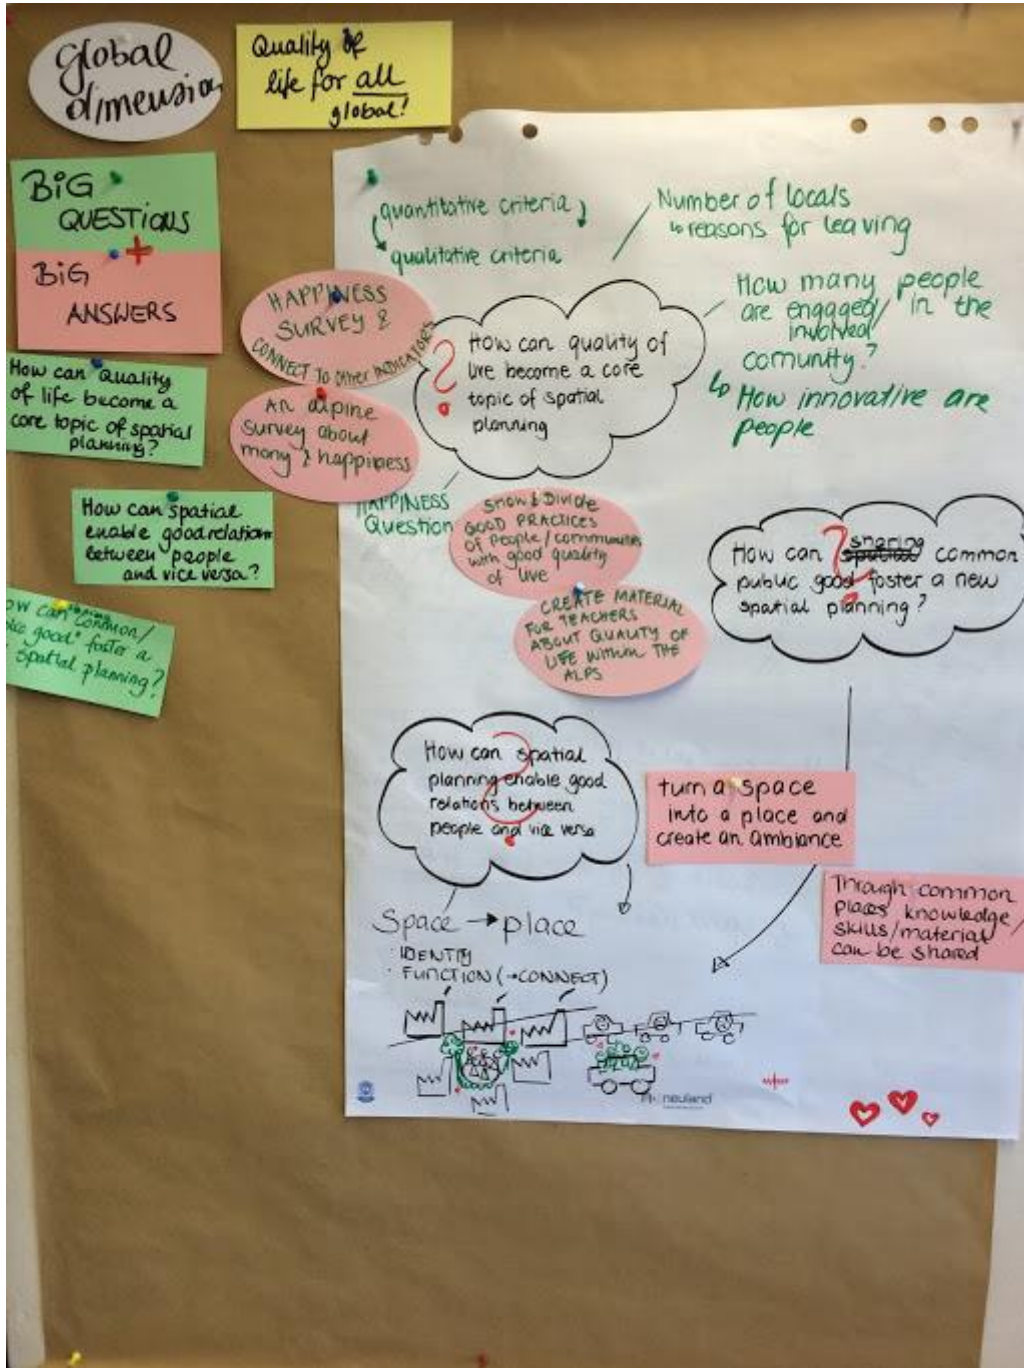 global
dimension
Quality of
life for all
global!
BiG
QUESTIONS
+
BiG
ANSWERS
How can quality
of life become a
core topic of spatial
planning?
How can spatial
enable good relation
between people
and vice versa?
ow can "common/
good" foster a
spatial planning?
quantitative criteria
qualitative criteria
Number of locals
reasons for leaving
How many people
are engaged/ in the
involved
comunity?
How innovative are
people
HAPPINESS
SURVEY &
CONNECT TO other INDICATORS
An alpine
survey about
mony & happiness
How can quality of
live become a core
topic of spatial
planning
?
HAPPINESS
Question
Show & Divide
GOOD PRACTICES
of people/communities
with good quality
of live
CREATE MATERIAL
FOR TEACHERS
ABOUT QUALITY OF
LIFE WITHIN THE
ALPS
sharing
How can spatial common
public good foster a new
spatial planning?
?
How can spatial
planning enable good
relations between
people and vice versa
?
turn a space
into a place and
create an ambiance
Through common
places knowledge/
skills/material
can be shared
Space → place
· IDENTITY
· FUNCTION (→CONNECT)
neuland